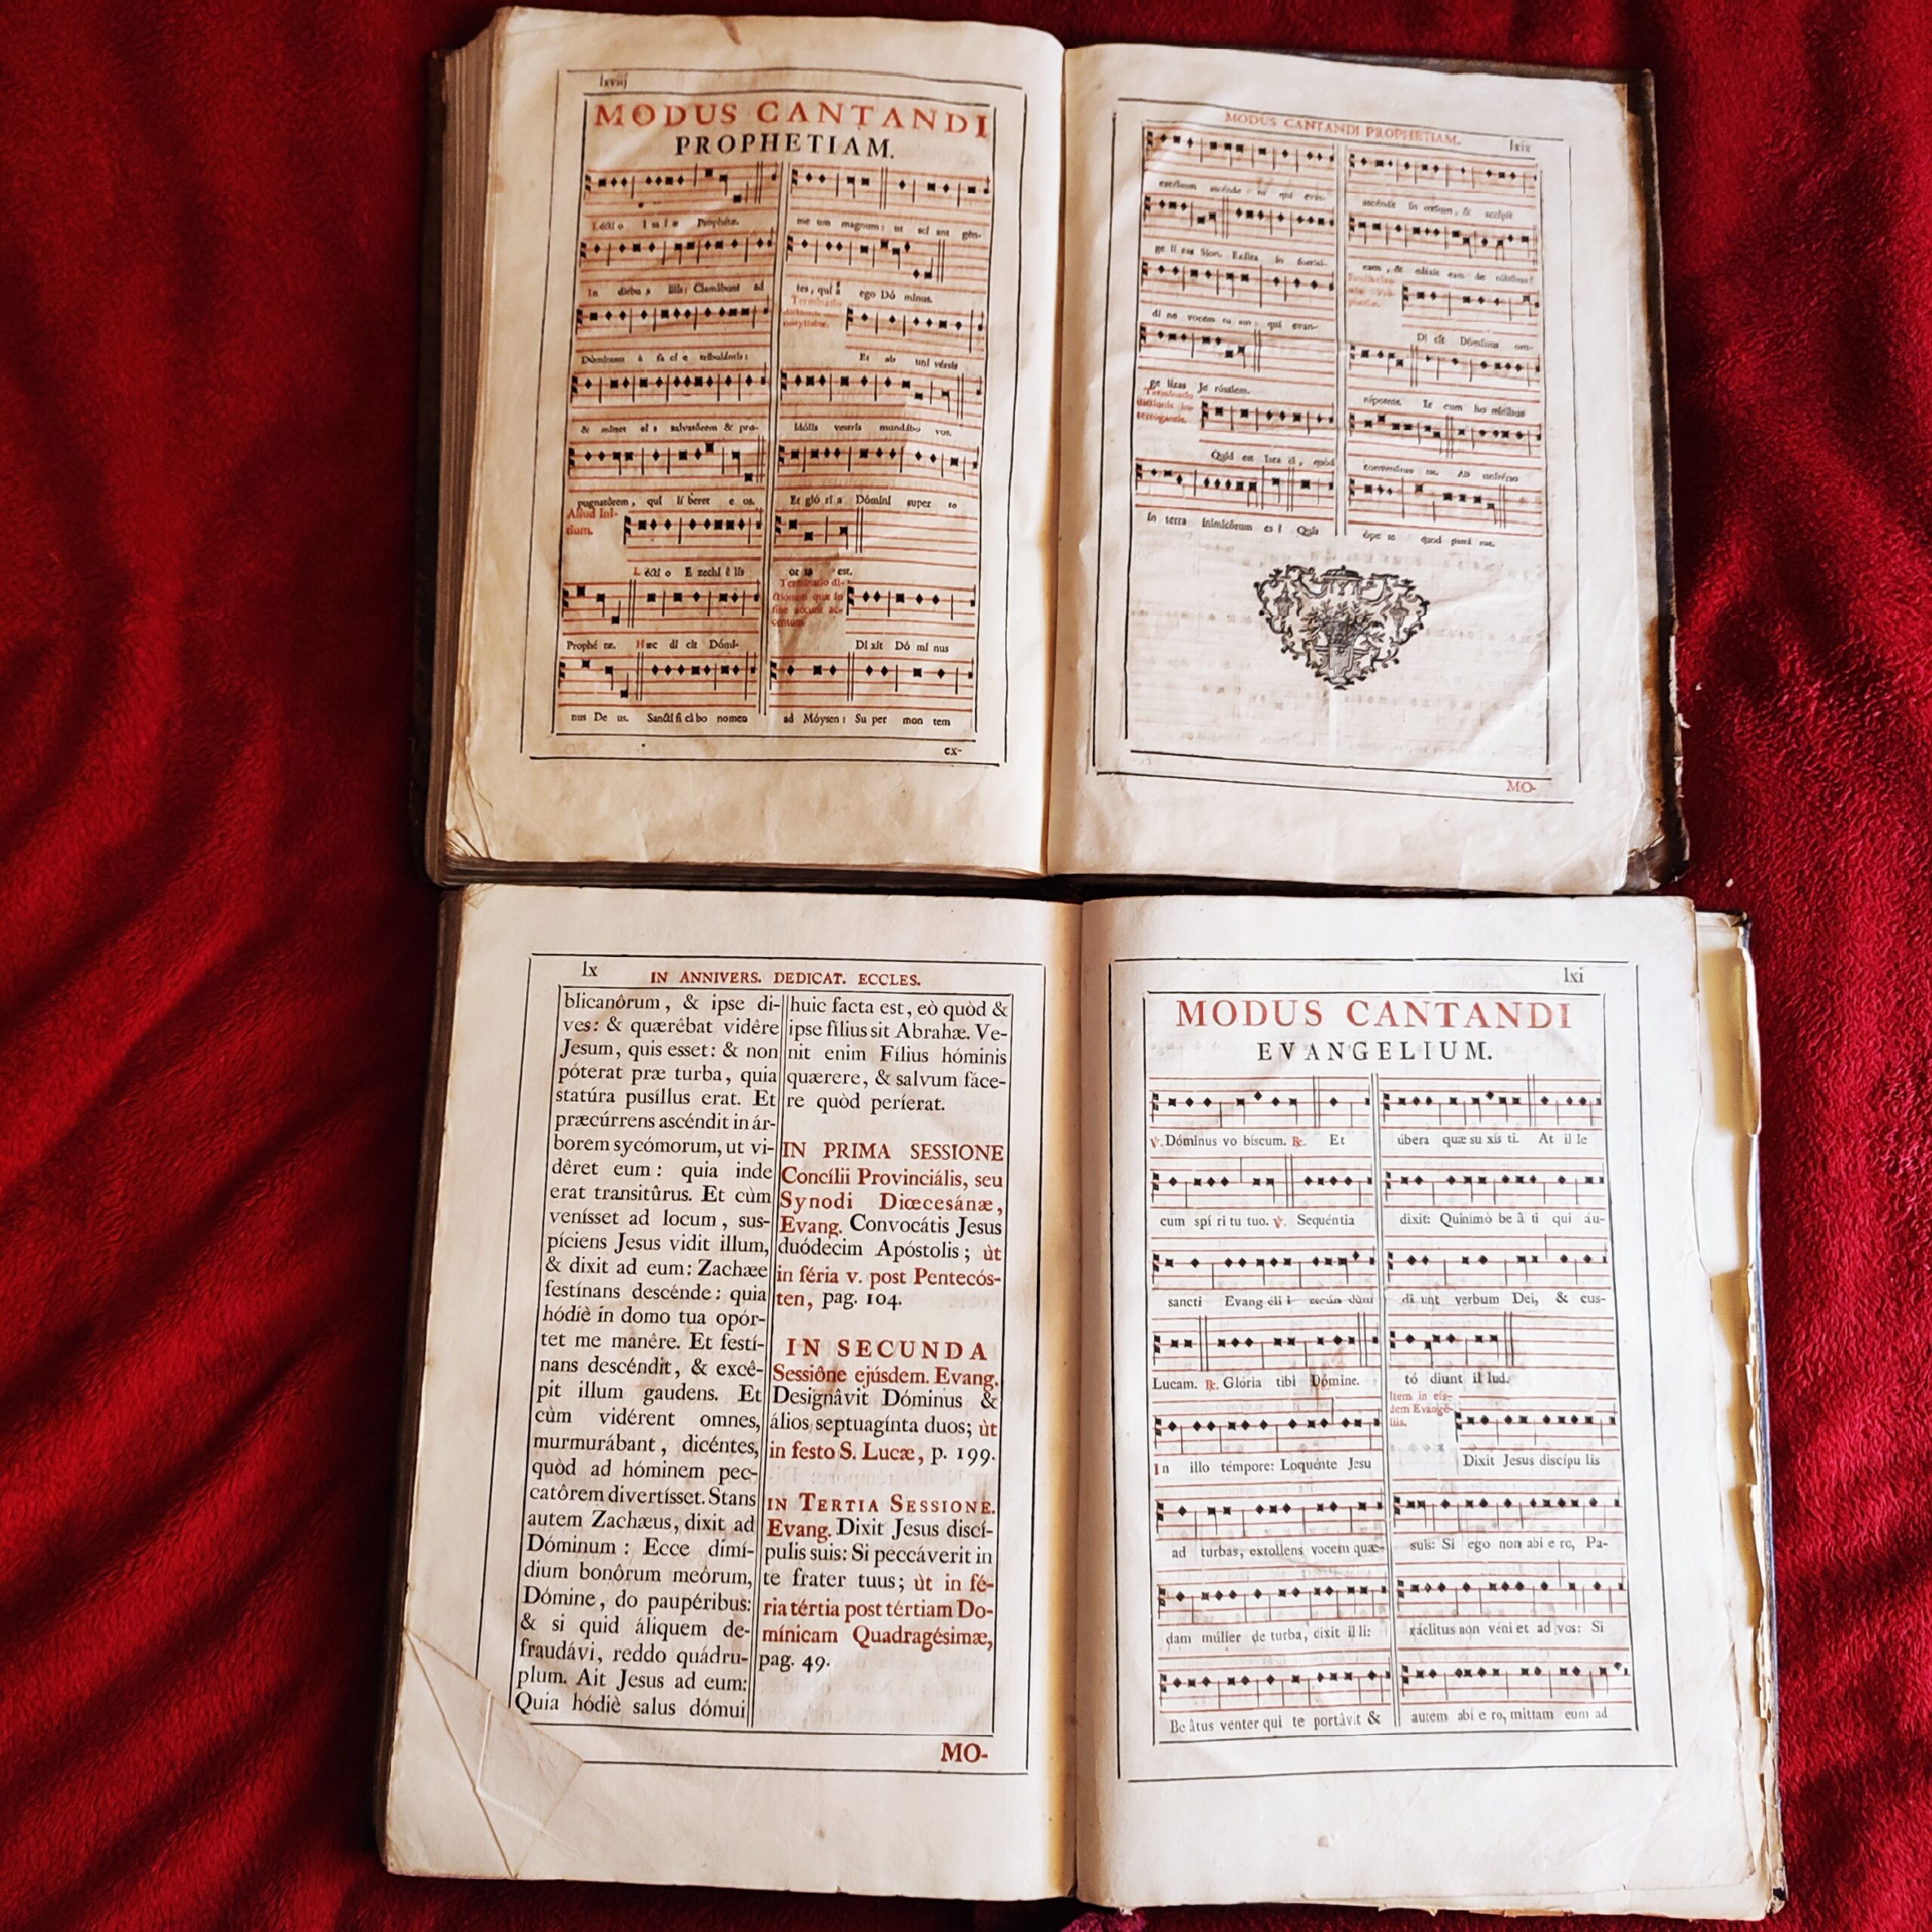 lxviij
MODUS CANTANDI
PROPHETIAM.
Lécti o I sa í e Prophétæ.
In diébu s illis: Clamâbunt ad
Dóminum à fá ci e tribulántis:
& mittet eî s salvatôrem & pro-
pugnatôrem, quí lí beret e os.
Aliud Ini-
tium.
L écti o E zechi ê lis
Prophé tæ. Hæc di cit Dómi-
nus De us. Sancti fi câ bo nomen
me um magnum: ut sci ant gén-
tes, quî a ego Dó minus.
Terminatio
Et ab uni vérsis
idólis vestris mundábo vos.
Et gló rí a Dómini super te
or ta est.
Terminatio di-
ctionum quæ in
fine acuunt ac-
centum.
Di xit Dó mi nus
ad Móysen: Su per mon tem
ex-
MODUS CANTANDI PROPHETIAM. lxix
excélsum ascénde tu quí evan-
ge lí zas Sion. Exálta in fortitú-
dí ne vocem tu am: quí evan-
ge lízas Je rúsalem.
Terminatio
dictionis in-
terrogantis.
Quid est Isra ël, quòd
in terra inimicôrum es? Quis
ascéndit in cœlum, & accépit
eam, & edúxit eam de núbibus?
Di cit Dóminus om-
nípotens. Et cum his ómnibus
convertímini
ópe re quod patrâ rat.
MO-
lx IN ANNIVERS. DEDICAT. ECCLES.
blicanôrum, & ipse di-
ves: & quærêbat vidêre
Jesum, quis esset: & non
póterat præ turba, quia
statúra pusíllus erat. Et
præcúrrens ascéndit in ár-
borem sycómorum, ut vi-
dêret eum: quia inde
erat transitûrus. Et cùm
venísset ad locum, sus-
píciens Jesus vidit illum,
& dixit ad eum: Zachæe
festínans descénde: quia
hódiè in domo tua opór-
tet me manêre. Et festí-
nans descéndit, & excê-
pit illum gaudens. Et
cùm vidérent omnes,
murmurábant, dicéntes,
quòd ad hóminem pec-
catôrem divertísset. Stans
autem Zachæus, dixit ad
Dóminum: Ecce dimí-
dium bonôrum meôrum,
Dómine, do paupéribus:
& si quid áliquem de-
fraudávi, reddo quádru-
plum. Ait Jesus ad eum:
Quia hódiè salus dómui
huic facta est, eò quòd &
ipse fílius sit Abrahæ. Ve-
nit enim Fílius hóminis
quærere, & salvum fáce-
re quòd períerat.
IN PRIMA SESSIONE
Concílii Provinciális, seu
Synodi Diœcesánæ,
Evang. Convocátis Jesus
duódecim Apóstolis; ùt
in féria v. post Pentecós-
ten, pag. 104.
IN SECUNDA
Sessiône ejúsdem. Evang.
Designâvit Dóminus &
álios septuagínta duos; ùt
in festo S. Lucæ, p. 199.
IN TERTIA SESSIONE.
Evang. Dixit Jesus discí-
pulis suis: Si peccáverit in
te frater tuus; ùt in fé-
ria tértia post tértiam Do-
mínicam Quadragésimæ,
pag. 49.
MO-
lxi
MODUS CANTANDI
EVANGELIUM.
℣. Dóminus vo bíscum. ℟. Et
cum spí ri tu tuo. ℣. Sequéntia
sancti Evang éli i secún dùm
Lucam. ℟. Glória tibi Dómine.
In illo témpore: Loquénte Jesu
ad turbas, extollens vocem quæ-
dam múlier de turba, dixit il li:
Be âtus venter qui te portâvit &
úbera quæ su xís ti. At il le
dixit: Quinímò be â ti qui áu-
dî unt verbum Dei, & cus-
tó diunt il lud.
Item in eís-
dem Evangé-
liis.
Dixit Jesus discípu lis
suis: Si ego non abi e ro, Pa-
ráclitus non véni et ad vos: Si
autem abi e ro, mittam eum ad